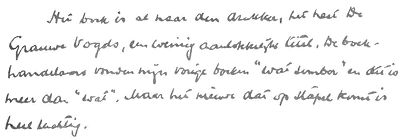 Het boek is al naar den drukker, het heet De
Grauwe Vogels, een weinig aanlokkelijke titel. De boek-
handelaars vonden mijn vorige boeken "wat somber" en dit is
meer dan "wat". Maar het nieuwe dat op stapel komt is
heel luchtig.